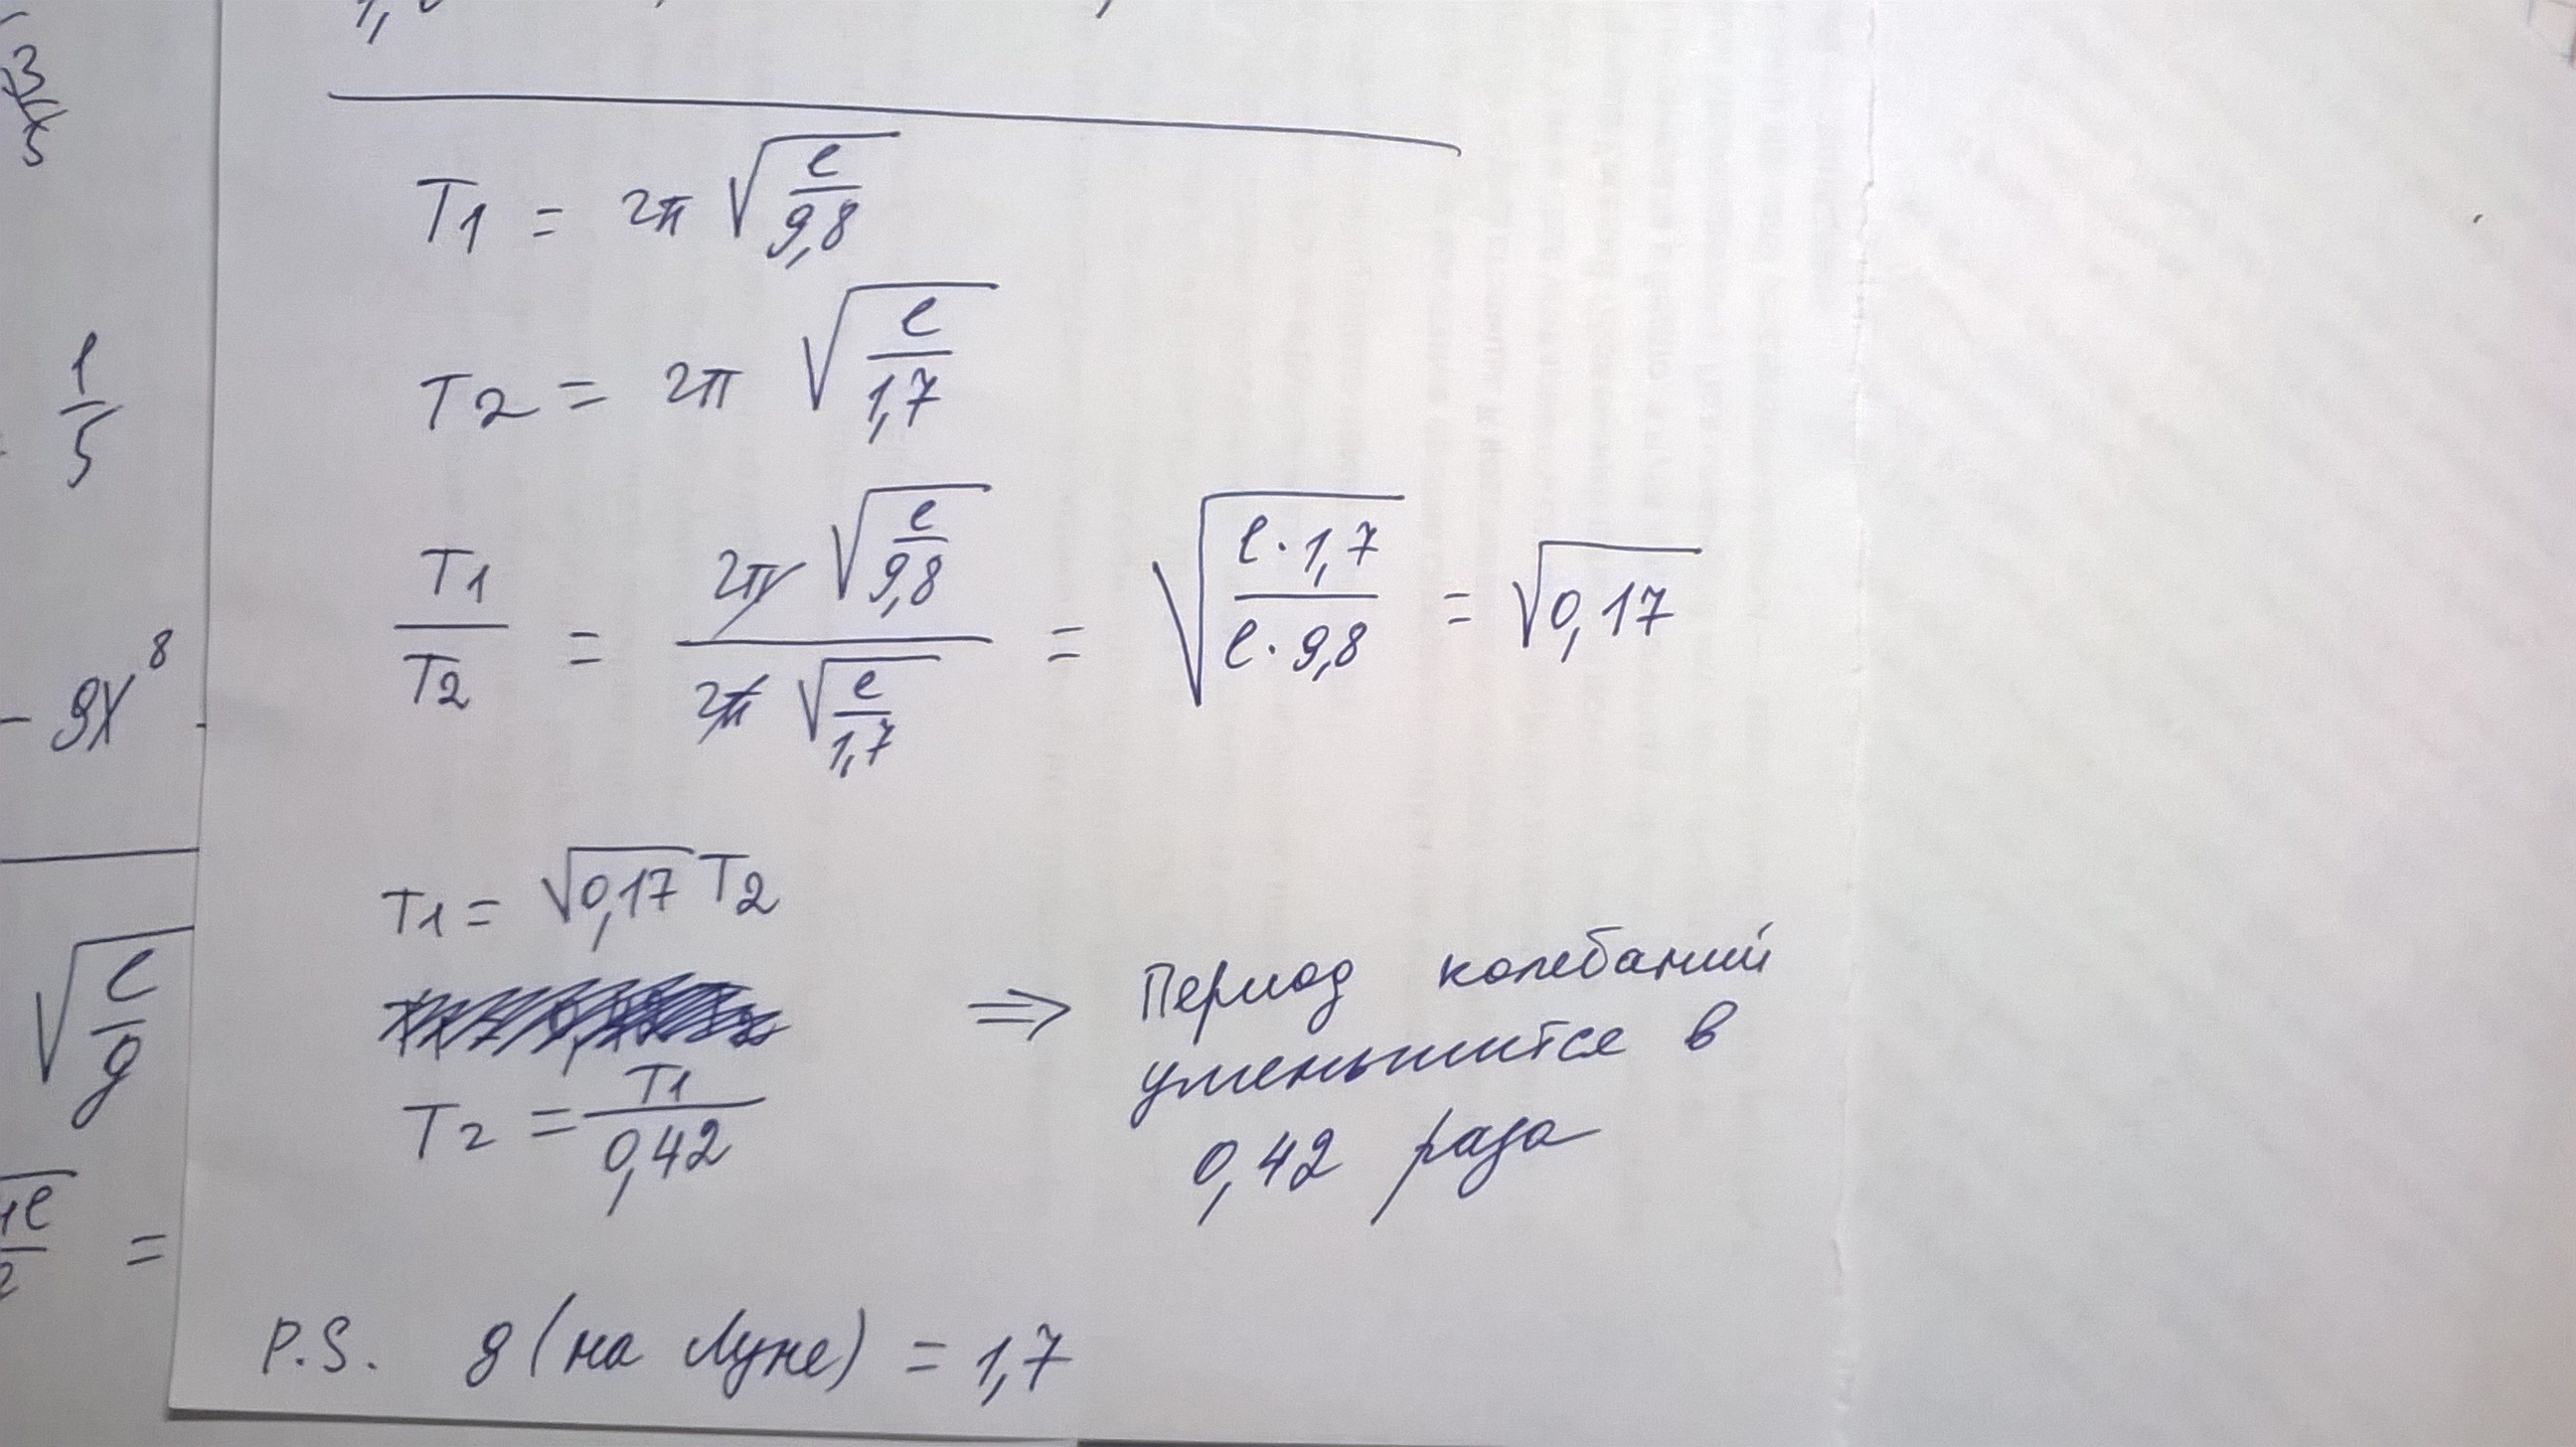 T1 = 2π √(l/9,8)
T2 = 2π √(l/1,7)
T1/T2 = 2π √(l/9,8) / 2π √(l/1,7) = √(l·1,7 / l·9,8) = √0,17
T1 = √0,17 T2
T2 = T1/0,42
⇒ Период колебаний
уменьшится в
0,42 раза
P.S. g (на Луне) = 1,7
1/5
- 9x⁸ -
√(l/g)
=